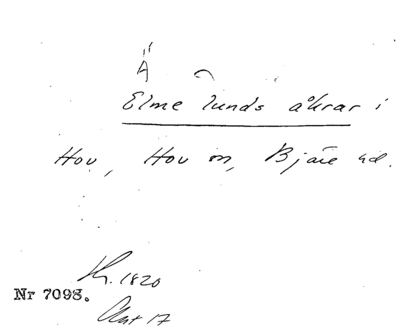 Ä
Elme lunds åkrar i
Hov, Hov sn, Bjäre hd.
1820
Nr 7098.
Akt 17